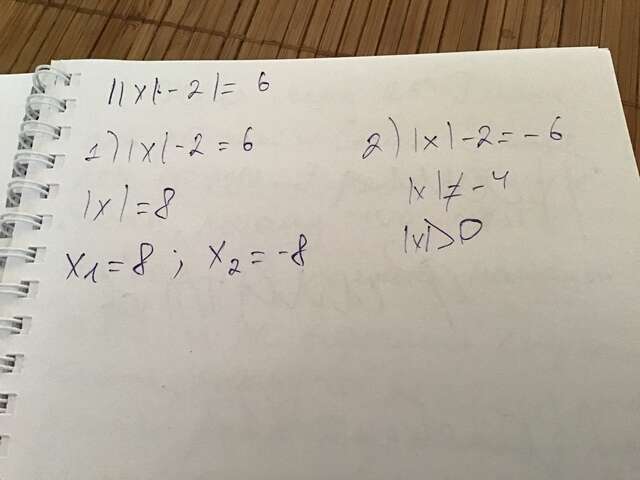 ||x|-2|= 6
1) |x|-2 = 6
|x| = 8
x1 = 8 ; x2 = -8
2) |x|-2 = -6
|x| ≠ -4
|x|>0